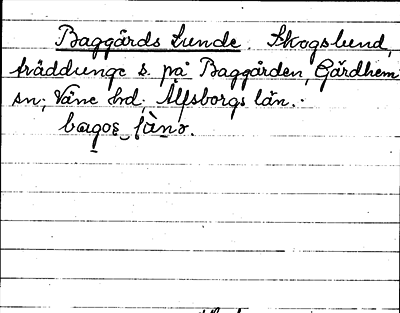 Baggårds Lunde. Skogslund,
träddunge s. på Baggården, Gärdhem
sn; Väne hd; Älfsborgs län.